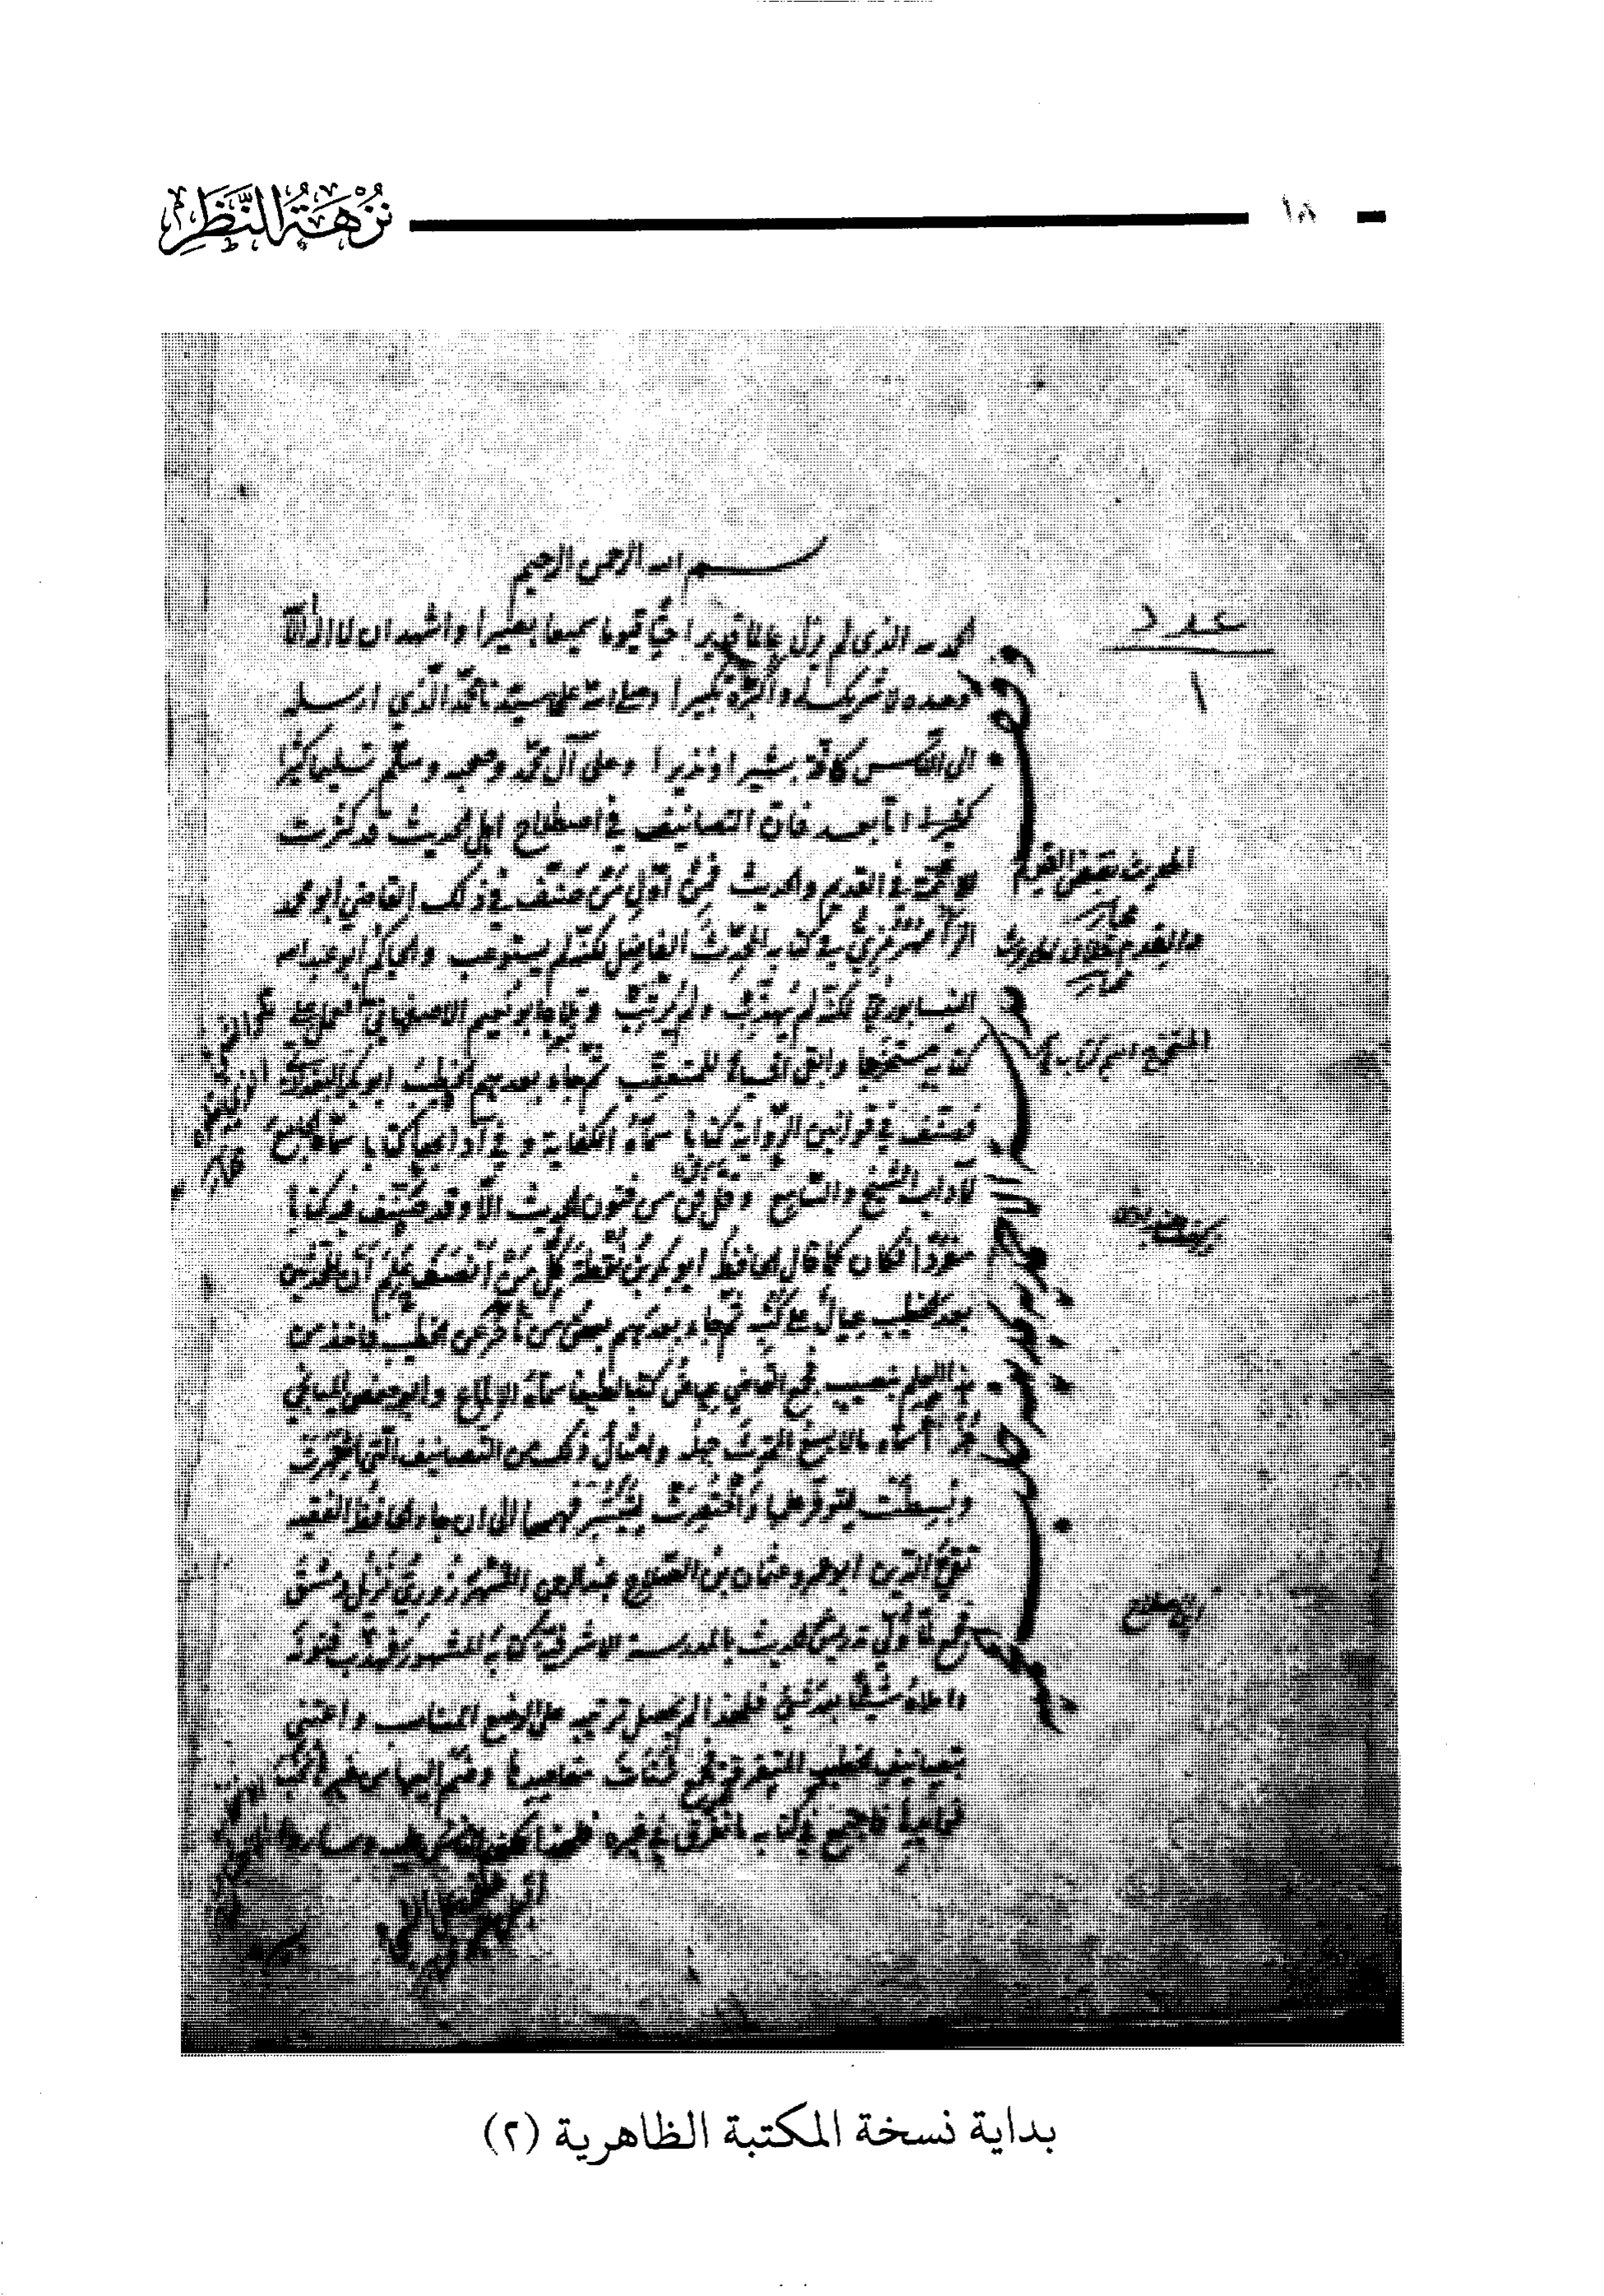 نُزْهَةُ النَّظَرِ
١٨
بسم الله الرحمن الرحيم
الحمد لله الذي لم يزل عالما قديرا حيا قيوما سميعا بصيرا واشهد ان لا اله الا الله
وحده لا شريك له واكبره تكبيرا وصلى الله على سيدنا محمد الذي ارسله
الى الناس كافة بشيرا ونذيرا وعلى آل محمد وصحبه وسلم تسليما كثيرا
كثيرا اما بعد فان التصانيف في اصطلاح اهل الحديث قد كثرت
للائمة في القديم والحديث فمن اول من صنف في ذلك القاضي ابو محمد
الرامهرمزي في كتابه المحدث الفاصل لكنه لم يستوعب والحاكم ابو عبد الله
النيسابوري لكنه لم يهذب ولم يرتب وتلاه ابو نعيم الاصفهاني فعمل على
كتابه مستخرجا وابقى اشياء للمتعقب ثم جاء بعدهم الخطيب ابو بكر البغدادي
فصنف في قوانين الرواية كتابا سماه الكفاية وفي آدابها كتابا سماه الجامع
لآداب الشيخ والسامع وقل فن من فنون الحديث الا وقد صنف فيه كتابا
مفردا فكان كما قال الحافظ ابو بكر بن نقطة كل من انصف علم ان المحدثين
بعد الخطيب عيال على كتبه ثم جاء بعدهم بعض من تأخر عن الخطيب فاخذ من
هذا العلم بنصيب فجمع القاضي عياض كتابا لطيفا سماه الالماع وابو حفص الميانجي
جزءا سماه مالا يسع المحدث جهله وامثال ذلك من التصانيف التي اشتهرت
وبسطت ليتوفر علمها واختصرت ليتيسر فهمها الى ان جاء الحافظ الفقيه
تقي الدين ابو عمرو عثمان بن الصلاح عبد الرحمن الشهرزوري نزيل دمشق
فجمع لما ولي تدريس الحديث بالمدرسة الاشرفية كتابه المشهور فهذب فنونه
واملاه شيئا بعد شيء فلهذا لم يحصل ترتيبه على الوضع المناسب واعتنى
بتصانيف الخطيب المتفرقة فجمع شتات مقاصدها وضم اليها من غيرها نخب
فوائدها فاجتمع في كتابه ما تفرق في غيره فلهذا عكف الناس عليه وساروا
عدد
١
الحديث نقيض القديم
والقديم خلاف الحديث
اسم كتاب
ابن صلاح
بداية نسخة المكتبة الظاهرية (٢)